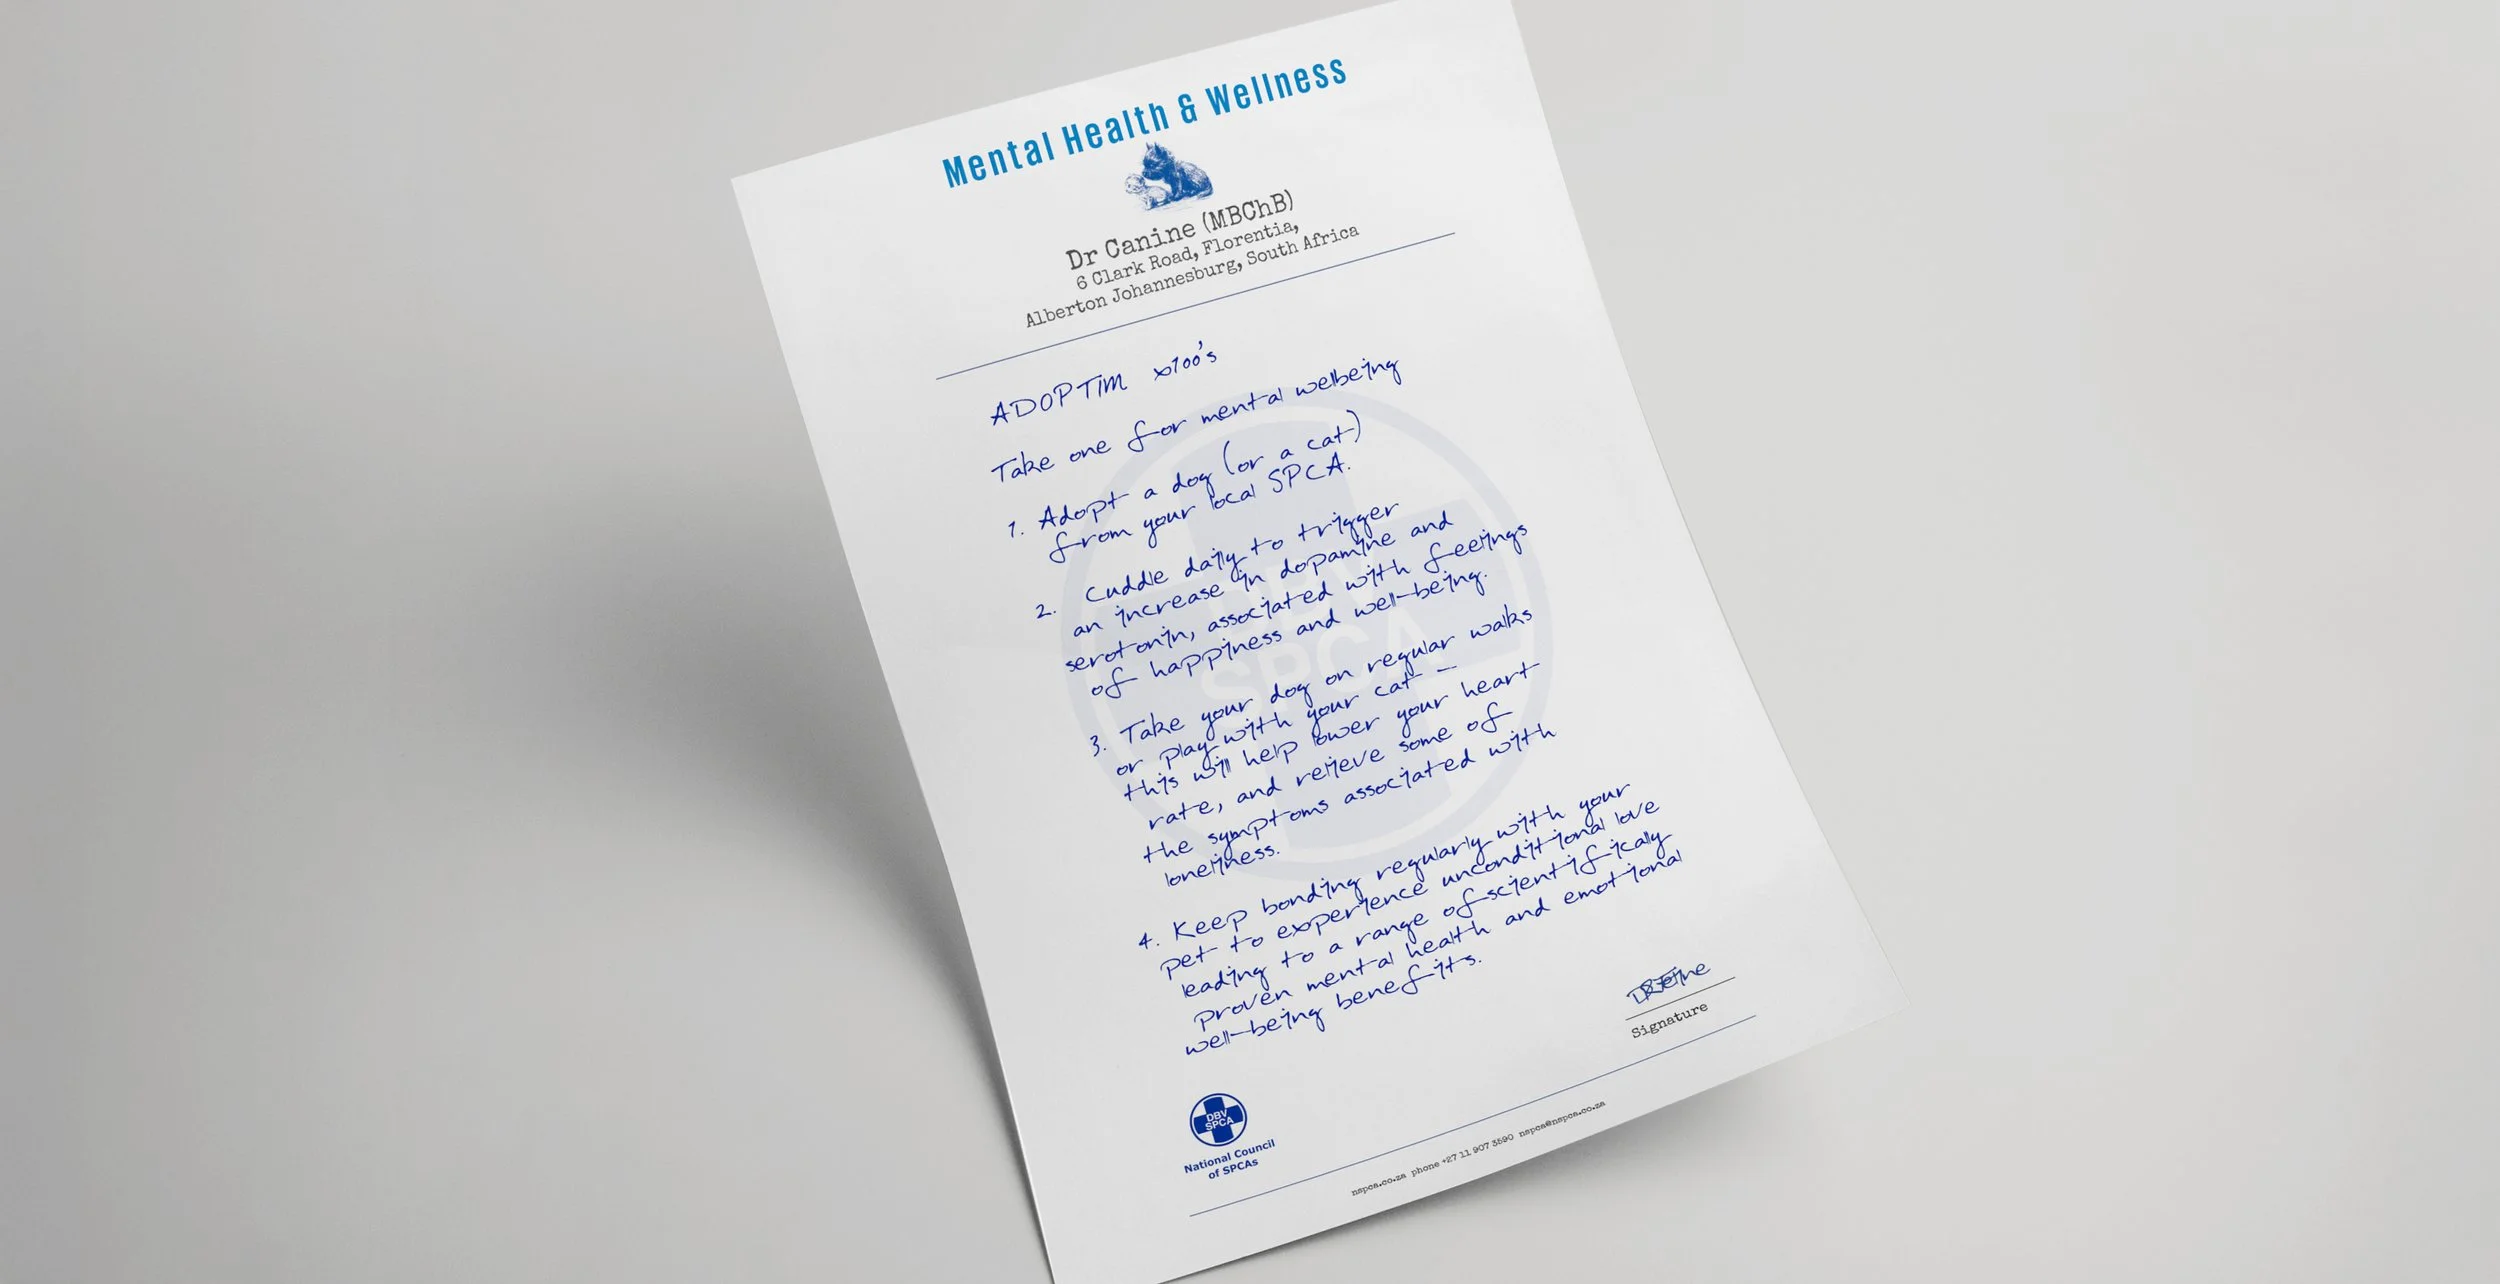 Mental Health & Wellness
Dr Canine (MBChB)
6 Clark Road, Florentia,
Alberton Johannesburg, South Africa
ADOPTIM x100's
Take one for mental welbeing
1. Adopt a dog (or a cat)
from your local SPCA.
2. Cuddle daily to trigger
an increase in dopamine and
serotonin, associated with feelings
of happiness and well-being.
3. Take your dog on regular walks
or play with your cat -
this will help lower your heart
rate, and relieve some of
the symptoms associated with
loneliness.
4. Keep bonding regularly with your
pet to experience unconditional love
leading to a range of scientifically
proven mental health and emotional
well-being benefits.
Signature
DBV
SPCA
National Council
of SPCAs
nspca.co.za phone +27 11 907 3590 nspca@nspca.co.za
DBV
SPCA